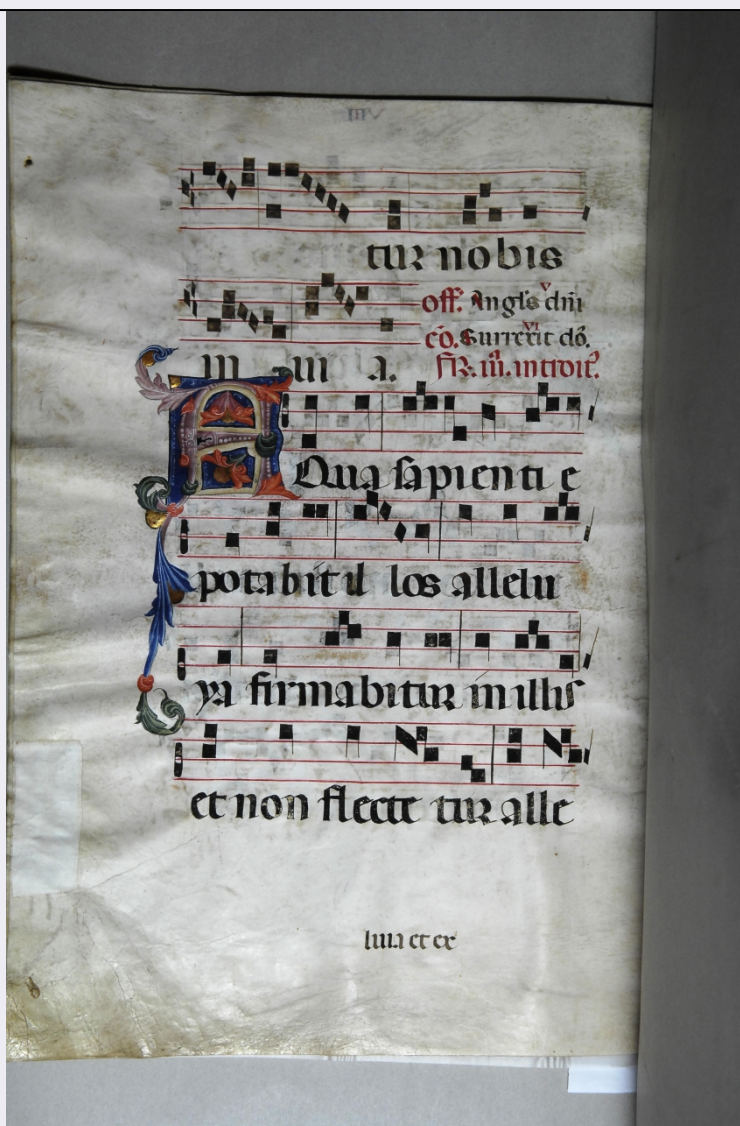 VIII
tur nobis
off. Angl's dm̄
cō. Surrexit dō.
in uia. fr̄. iii. introit'.
AQua sapienti e
potabit il los allelu
ya firmabitur in illis
et non flecte tur alle
luia et ex